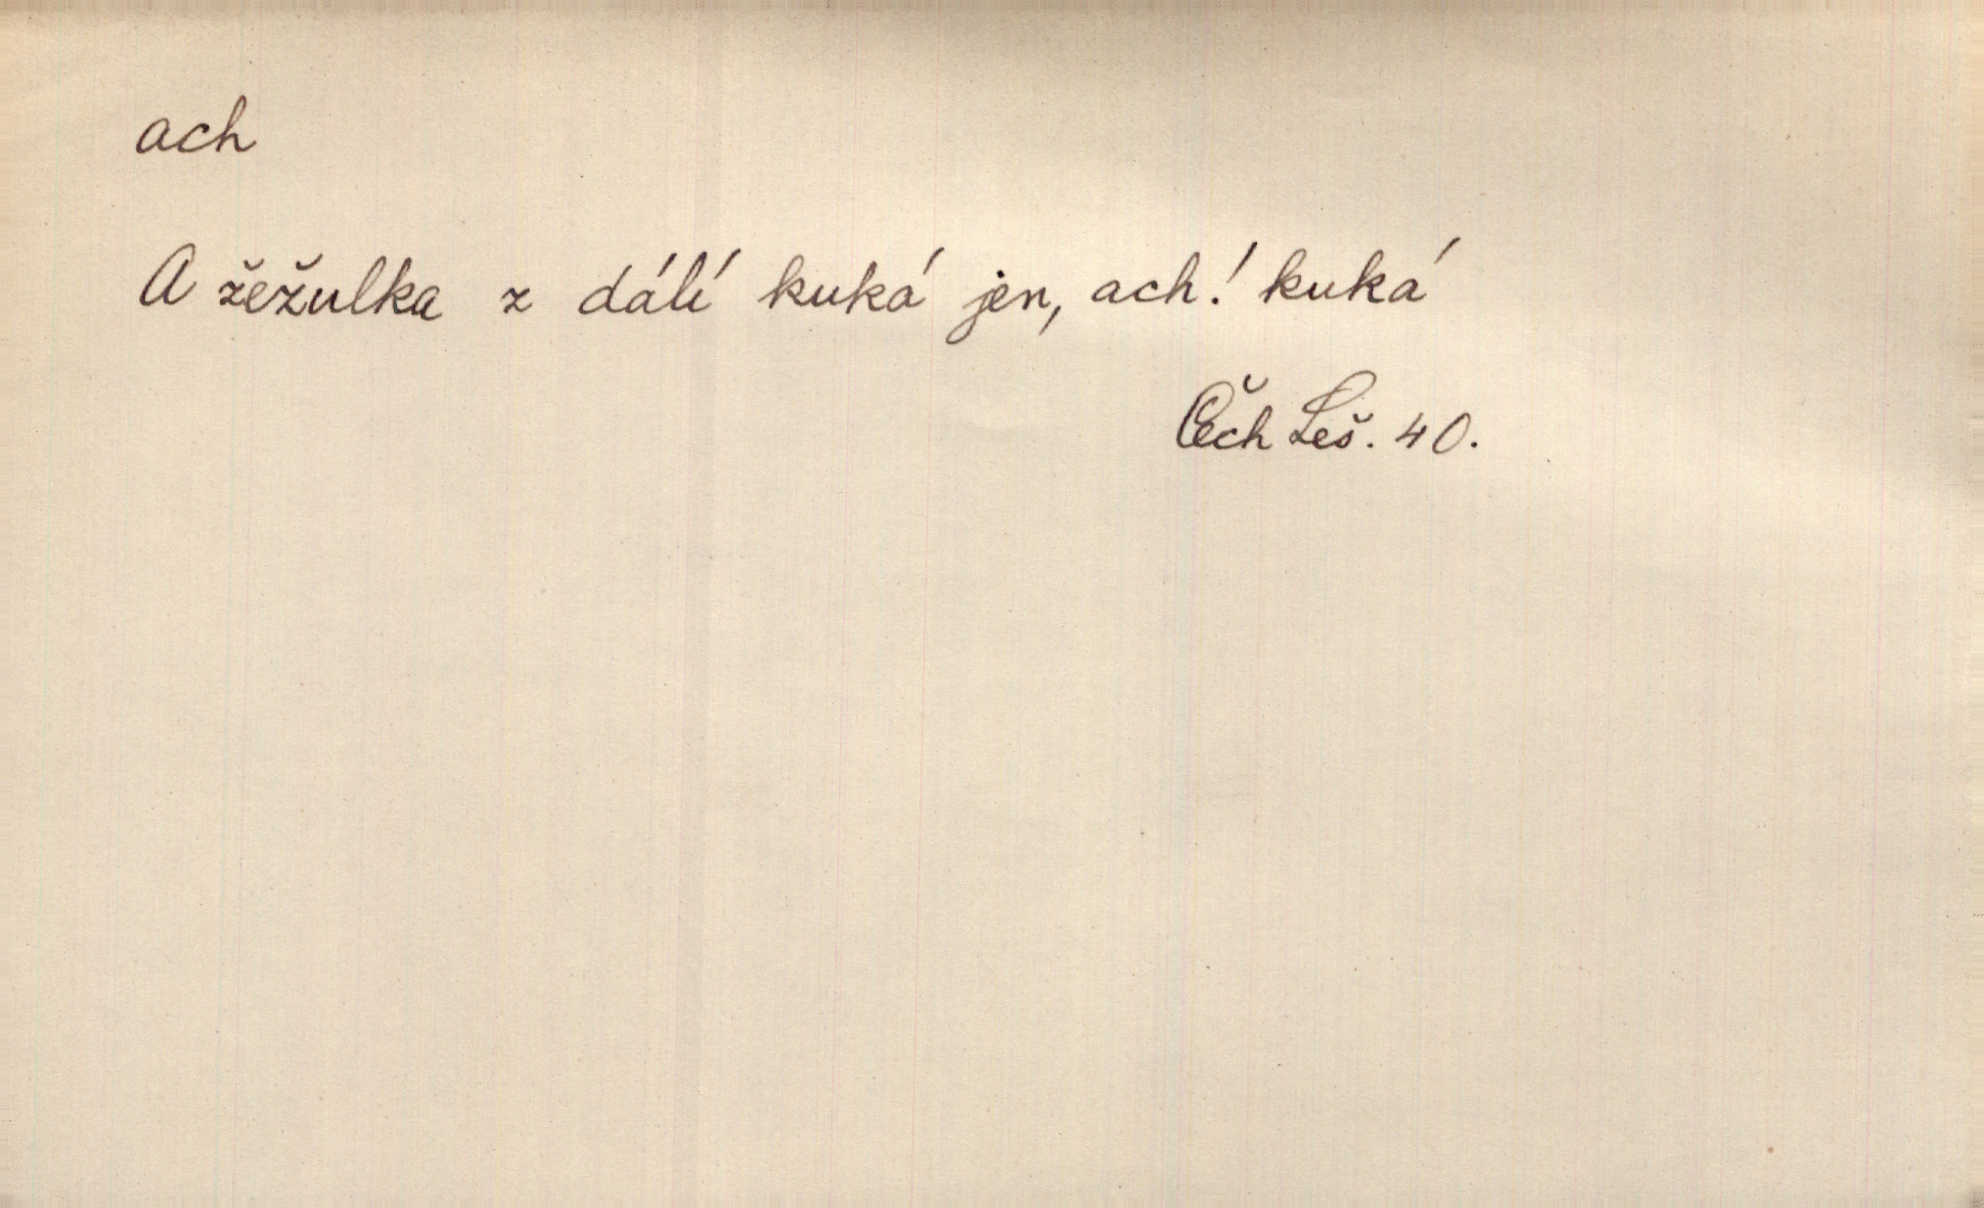 ach
A žežulka z dálí kuká jen, ach! kuká
Čech Leš. 40.